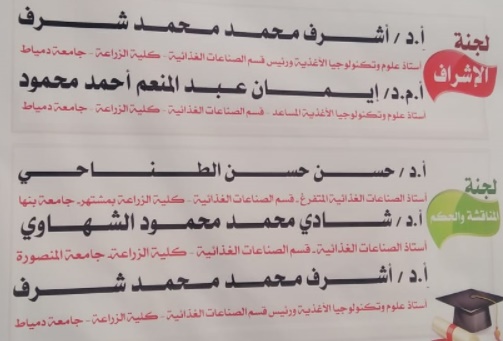 لجنة
الإشراف
أ.د / أشرف محمد محمد شرف
أستاذ علوم وتكنولوجيا الأغذية ورئيس قسم الصناعات الغذائية - كلية الزراعة - جامعة دمياط
أ.م.د/ إيمان عبد المنعم أحمد محمود
أستاذ علوم وتكنولوجيا الأغذية المساعد - قسم الصناعات الغذائية - كلية الزراعة - جامعة دمياط
لجنة
المناقشة والحكم
أ.د / حسن حسن الطناحي
أستاذ الصناعات الغذائية المتفرغ - قسم الصناعات الغذائية - كلية الزراعة بمشتهر - جامعة بنها
أ.د / شادي محمد محمود الشهاوي
أستاذ الصناعات الغذائية - قسم الصناعات الغذائية - كلية الزراعة - جامعة المنصورة
أ.د / أشرف محمد محمد شرف
أستاذ علوم وتكنولوجيا الأغذية ورئيس قسم الصناعات الغذائية - كلية الزراعة - جامعة دمياط